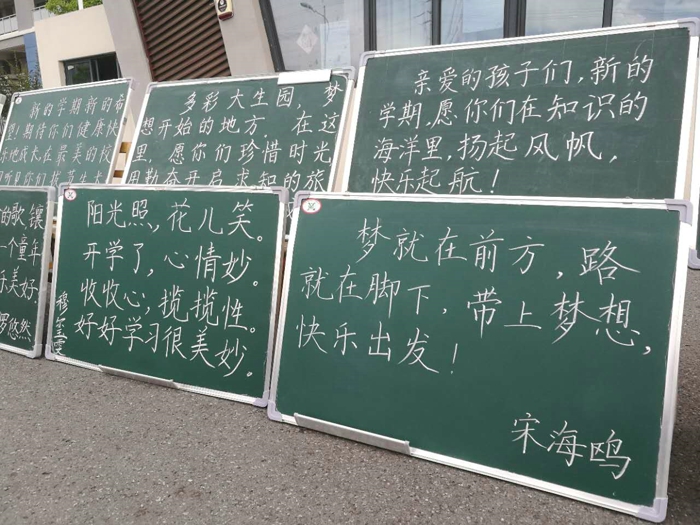 新的学期新的希
望！期待你们健康快
乐地成长。在最美的校
多彩大生园，梦
想开始的地方。在这
里，愿你们珍惜时光
用勤奋开启求知的旅
亲爱的孩子们，新的
学期，愿你们在知识的
海洋里，扬起风帆，
快乐起航！
的歌，镶
一个童年
乐美好
罗悠然
阳光照，花儿笑。
开学了，心情妙。
收收心，揽揽性。
好好学习很美妙。
梦就在前方，路
就在脚下，带上梦想，
快乐出发！
宋海鸥